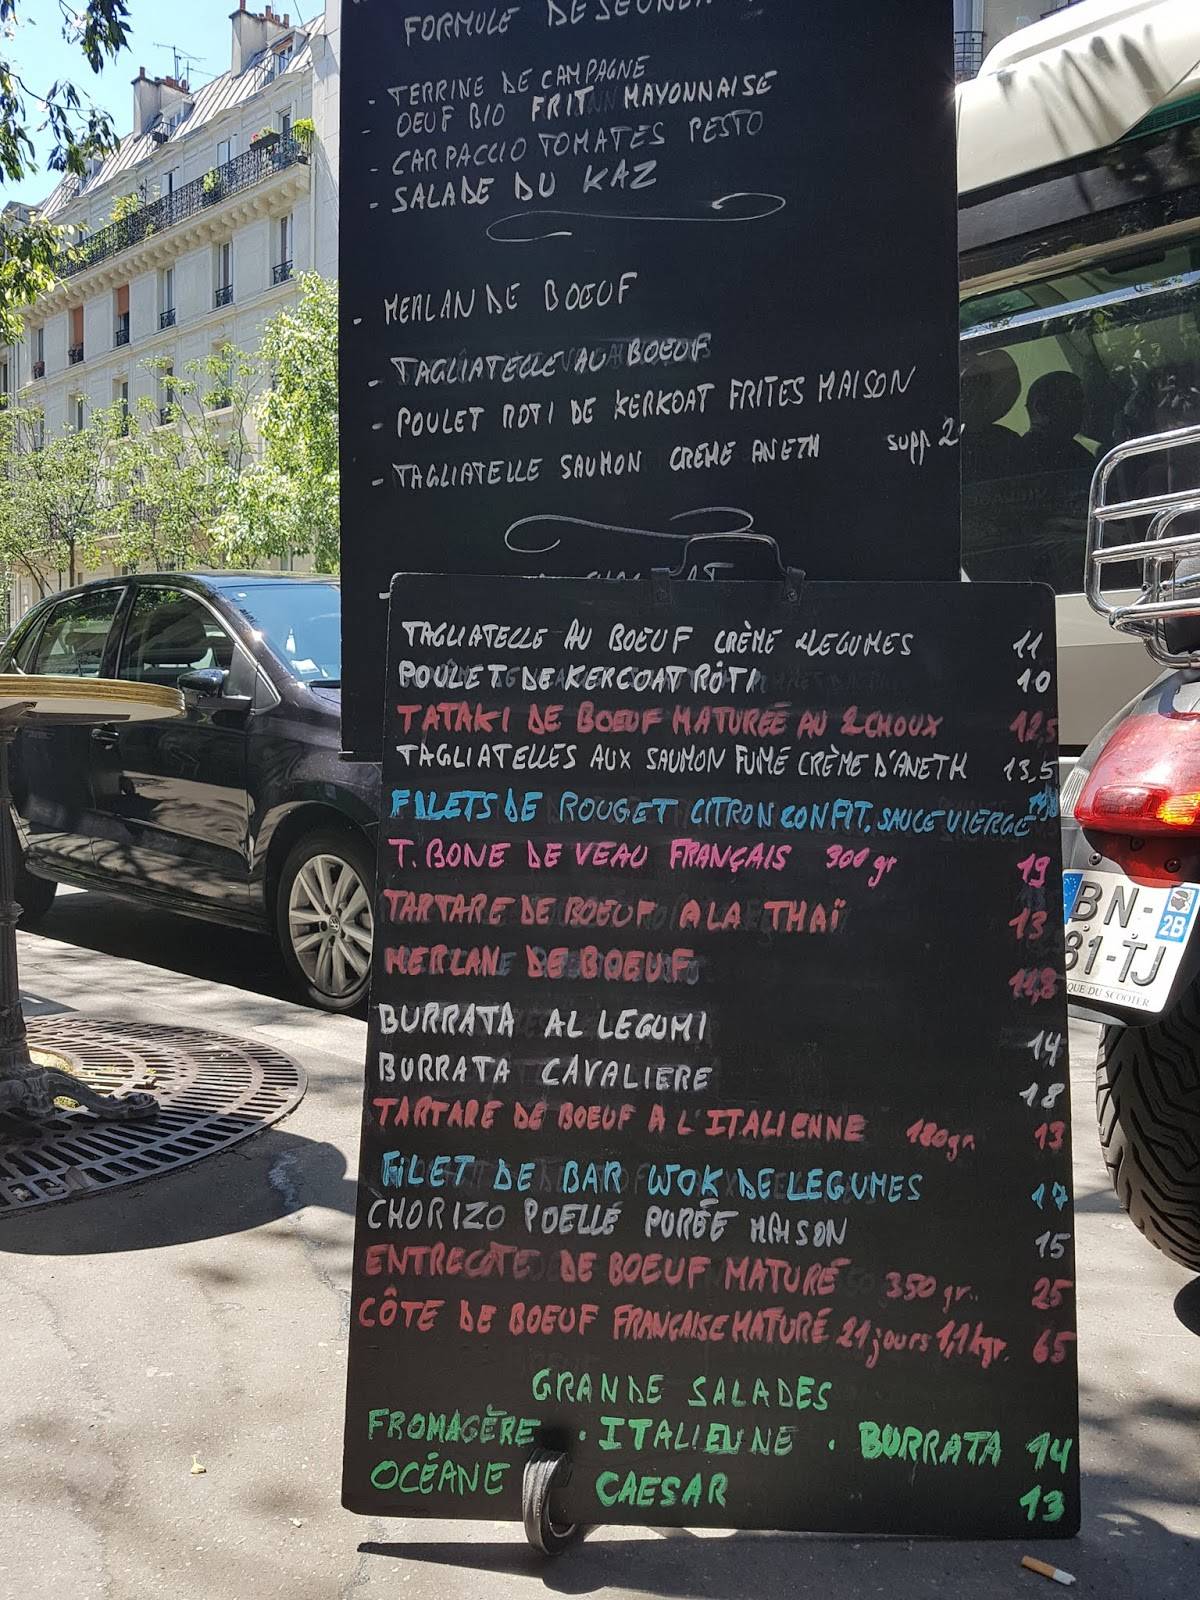 FORMULE DEJEUNER
- TERRINE DE CAMPAGNE
- OEUF BIO FRIT MAYONNAISE
- CARPACCIO TOMATES PESTO
- SALADE DU KAZ
- MERLAN DE BOEUF
- TAGLIATELLE AU BOEUF
- POULET ROTI DE KERKOAT FRITES MAISON
- TAGLIATELLE SAUMON CREME ANETH supp 2
TAGLIATELLE AU BOEUF CRÈME LEGUMES 11
POULET DE KERCOAT RÔTI 10
TATAKI DE BOEUF MATURÉE AU 2 CHOUX 12,5
TAGLIATELLES AUX SAUMON FUMÉ CRÈME D'ANETH 13,5
FILETS DE ROUGET CITRON CONFIT. SAUCE VIERGE
T. BONE DE VEAU FRANÇAIS 300 gr 19
TARTARE DE BOEUF A LA THAÏ 13
MERLAN DE BOEUF 14,8
BURRATA AL LEGUMI 14
BURRATA CAVALIERE 18
TARTARE DE BOEUF A L'ITALIENNE 180gr. 13
FILET DE BAR WOK DE LEGUMES 17
CHORIZO POELLÉ PURÉE MAISON 15
ENTRECÔTE DE BOEUF MATURÉ 350 gr. 25
CÔTE DE BOEUF FRANÇAISE MATURÉ 21 jours 1,1 kgr. 65
GRANDE SALADES
FROMAGÈRE . ITALIENNE . BURRATA 14
OCÉANE CAESAR 13
BN-
2B
81-TJ
QUE DU SCOOTER